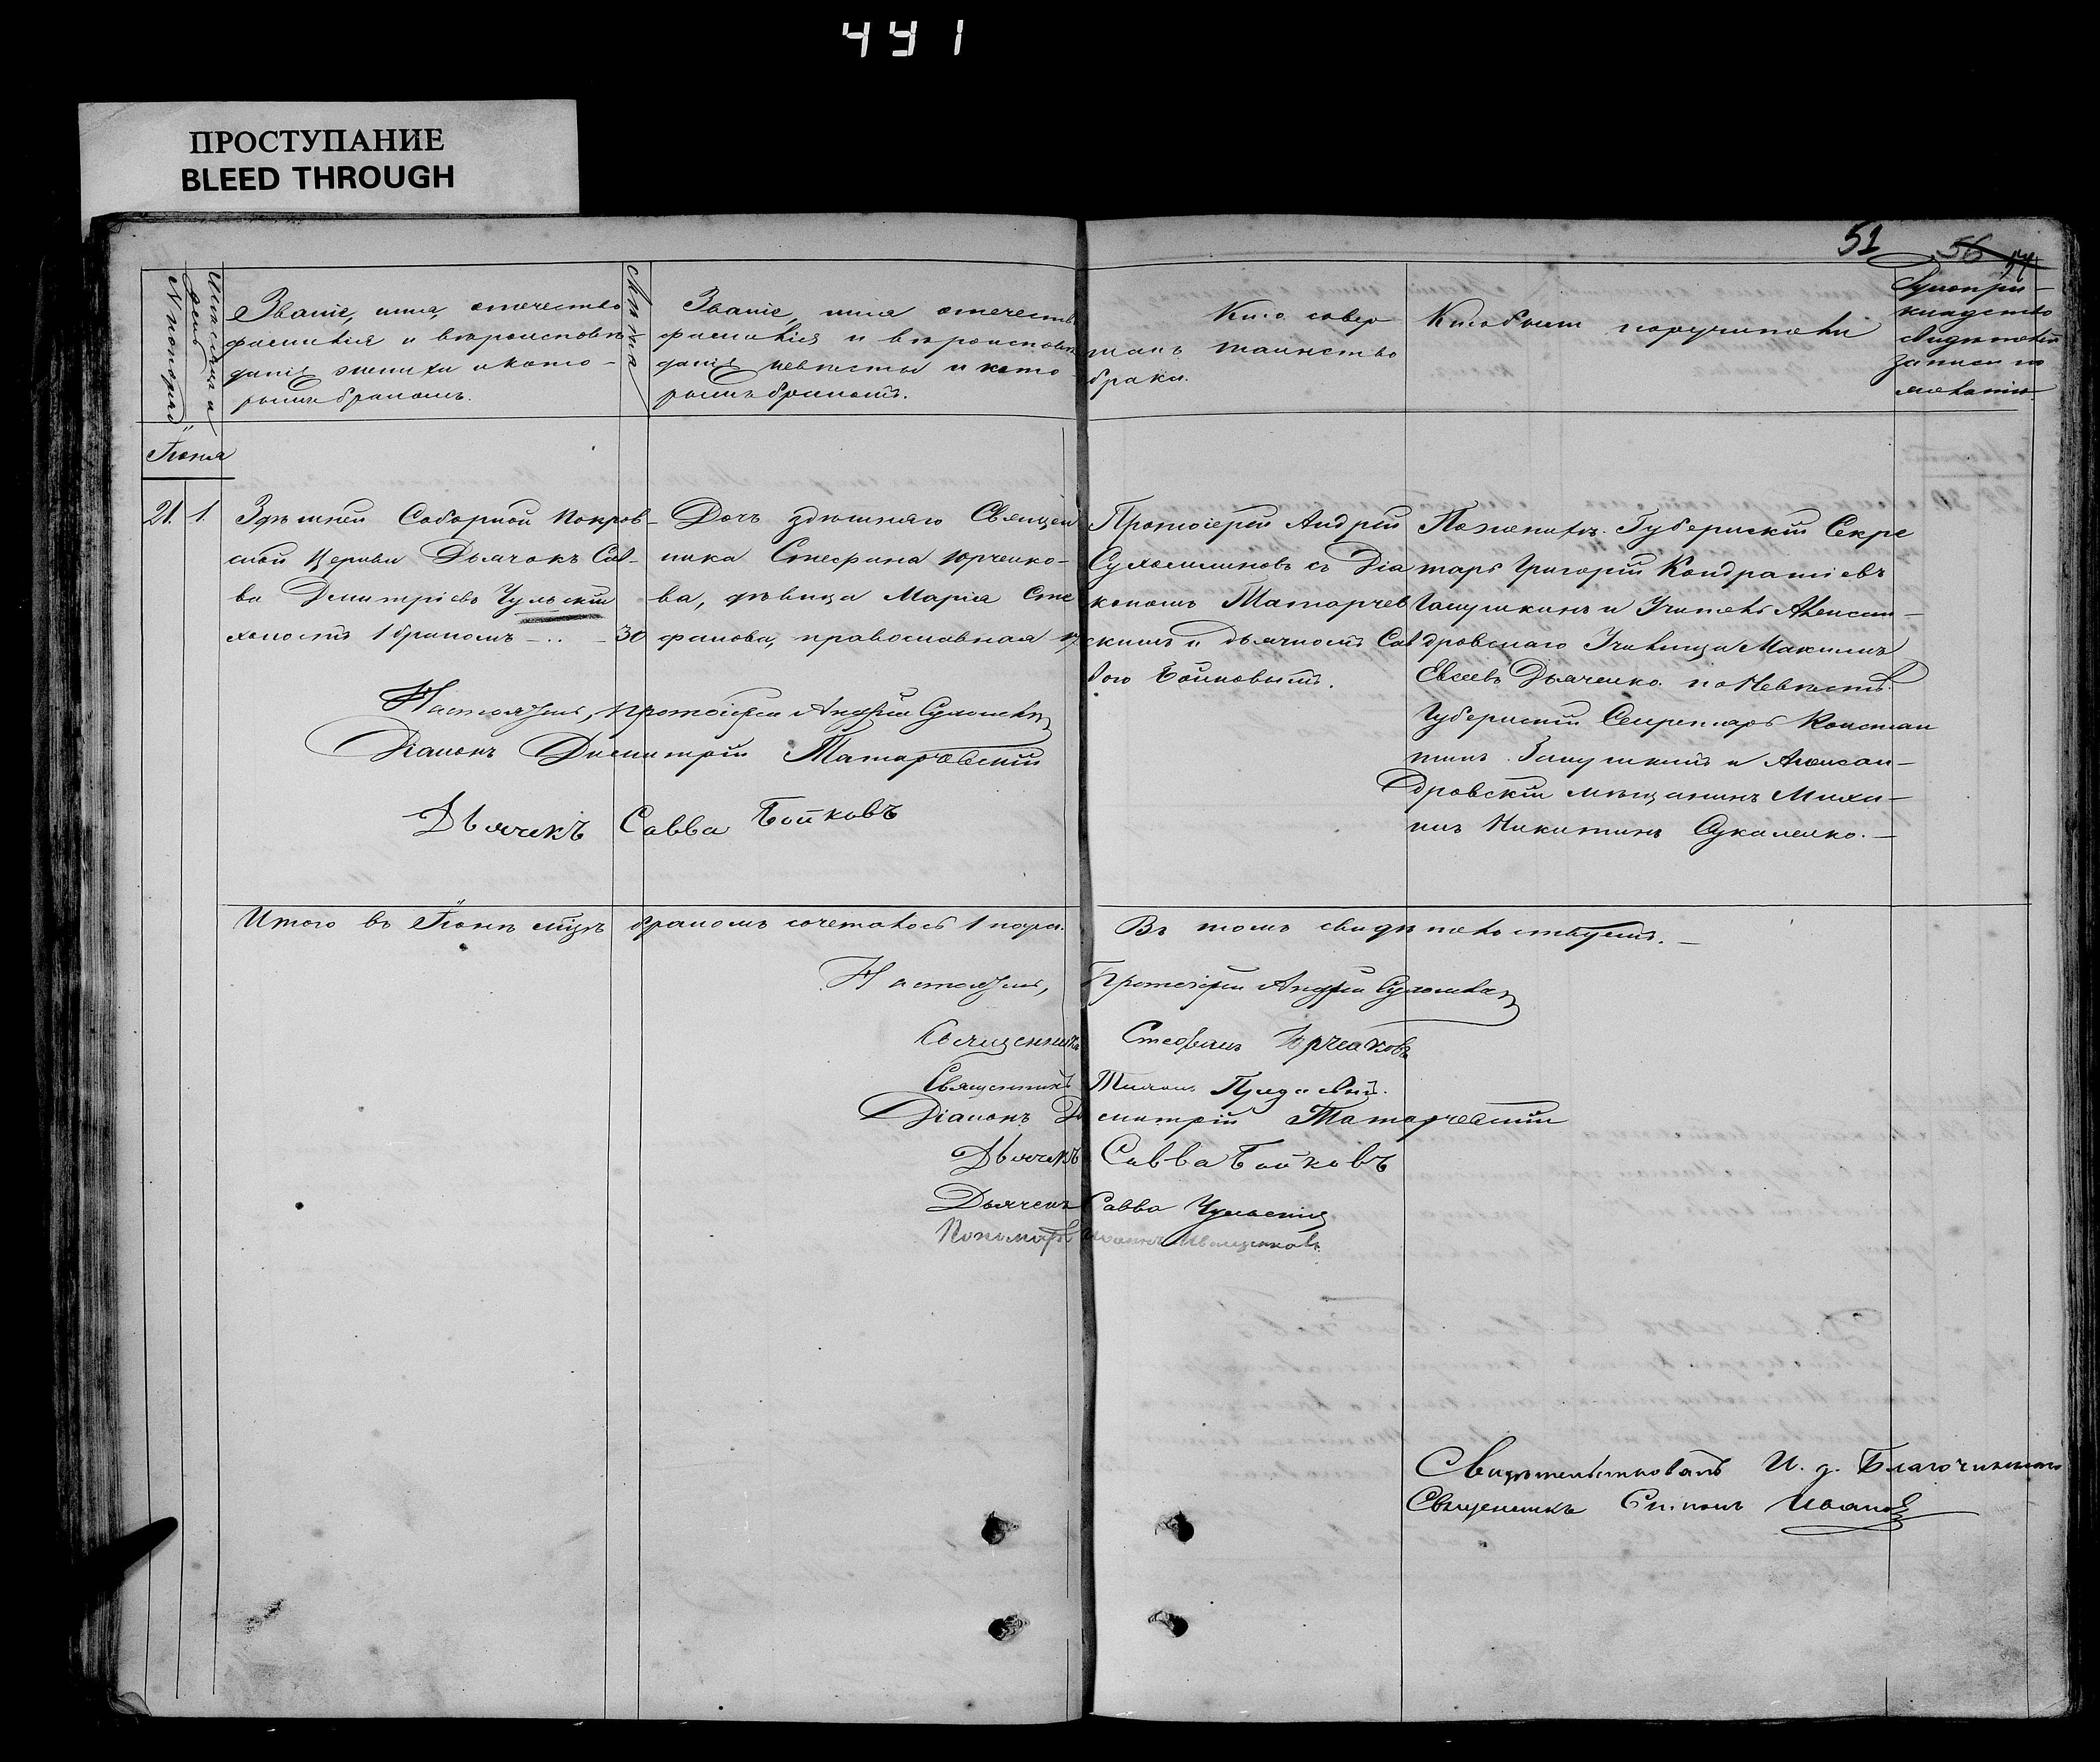 441
ПРОСТУПАНИЕ
BLEED THROUGH
51
56
№ по порядку
Мѣсяцъ и день
Званіе, имя, отечество
фамилія и вѣроисповѣ
данія жениха и кото-
рымъ бракомъ.
Лѣта
Званіе, имя отечество
фамилія и вѣроисповѣ
данія невѣсты и кото-
рымъ бракомъ.
Кто совер
шалъ таинство
брака.
Кто были поручители
Рукопри-
кладство
свидѣтелей
записи по
желанію.
Іюня
21. 1.
Здѣшней Соборной Покров-
ской Церкви Дьячокъ Сав-
ва Димитріевъ Чульскій
холостъ 1 бракомъ - .. - 30
Дочь здѣшняго Священ
ника Стефана Юрченко-
ва, дѣвица Марія Сте
фанова, православная 17
Протоіерей Андрей
Сухомлиновъ съ Діа
кономъ Татарчев
скимъ и дьячкомъ Сав
вою Бойковымъ.
По женихѣ. Губернскій Секре
тарь Григорій Кондратіевъ
Галушкинъ и Учитель Алексан-
дровскаго Училища Максимъ
Евсеевъ Дьяченко. по Невѣстѣ
Губернскій Секретарь Констан
тинъ и Алексан-
дровскій мѣщанинъ Миха-
илъ Никитинъ Сукаленко. -
Настоятель, протоіерей Андрей Сухомлинъ
Діаконъ Димитрій Татарчевскій
Дьячекъ Савва Бойковъ
Итого въ Іюнѣ мцѣ бракомъ сочеталось 1 пара. Въ томъ свидѣтельствуемъ. -
Настоятель, Протоіерей Андрей Сухомлинъ
Священникъ Стефанъ Юрченковъ
Священникъ Тихонъ
Діаконъ Димитрій Татарчевскій
Дьячекъ Савва Бойковъ
Дьячекъ Савва Чульскій
Пономарь Иоаннъ Иващенковъ
Свидѣтельствовалъ И. д. Благочиннаго
Священникъ Симеонъ Иванов